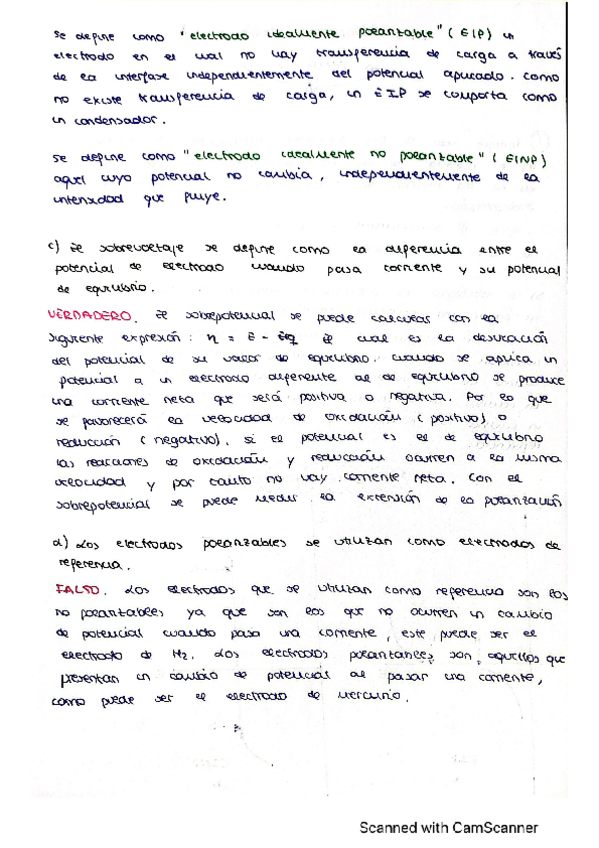 se define como "electrodo idealmente polarizable" (EIP) un
electrodo en el cual no hay transferencia de carga a través
de la interfase independientemente del potencial aplicado. Como
no existe transferencia de carga, un EIP se comporta como
un condensador.
se define como "electrodo idealmente no polarizable" (EINP)
aquel cuyo potencial no cambia, independientemente de la
intensidad que fluye.
c) El sobrevoltaje se define como la diferencia entre el
potencial de electrodo cuando pasa corriente y su potencial
de equilibrio.
VERDADERO. El sobrepotencial se puede calcular con la
siguiente expresión: η = E - Eeq el cual es la desviación
del potencial de su valor de equilibrio. cuando se aplica un
potencial a un electrodo diferente al de equilibrio se produce
una corriente neta que será positiva o negativa. Por lo que
se favorecerá la velocidad de oxidación (positivo) o
reducción (negativo). si el potencial es el de equilibrio
las reacciones de oxidación y reducción ocurren a la misma
velocidad y por tanto no hay corriente neta. Con el
sobrepotencial se puede medir la extensión de la polarización
d) Los electrodos polarizables se utilizan como electrodos de
referencia.
FALSO. Los electrodos que se utilizan como referencia son los
no polarizables ya que son los que no ocurren un cambio
de potencial cuando pasa una corriente, este puede ser el
electrodo de H2. Los electrodos polarizables son aquellos que
presentan un cambio de potencial al pasar una corriente,
como puede ser el electrodo de mercurio.
Scanned with CamScanner